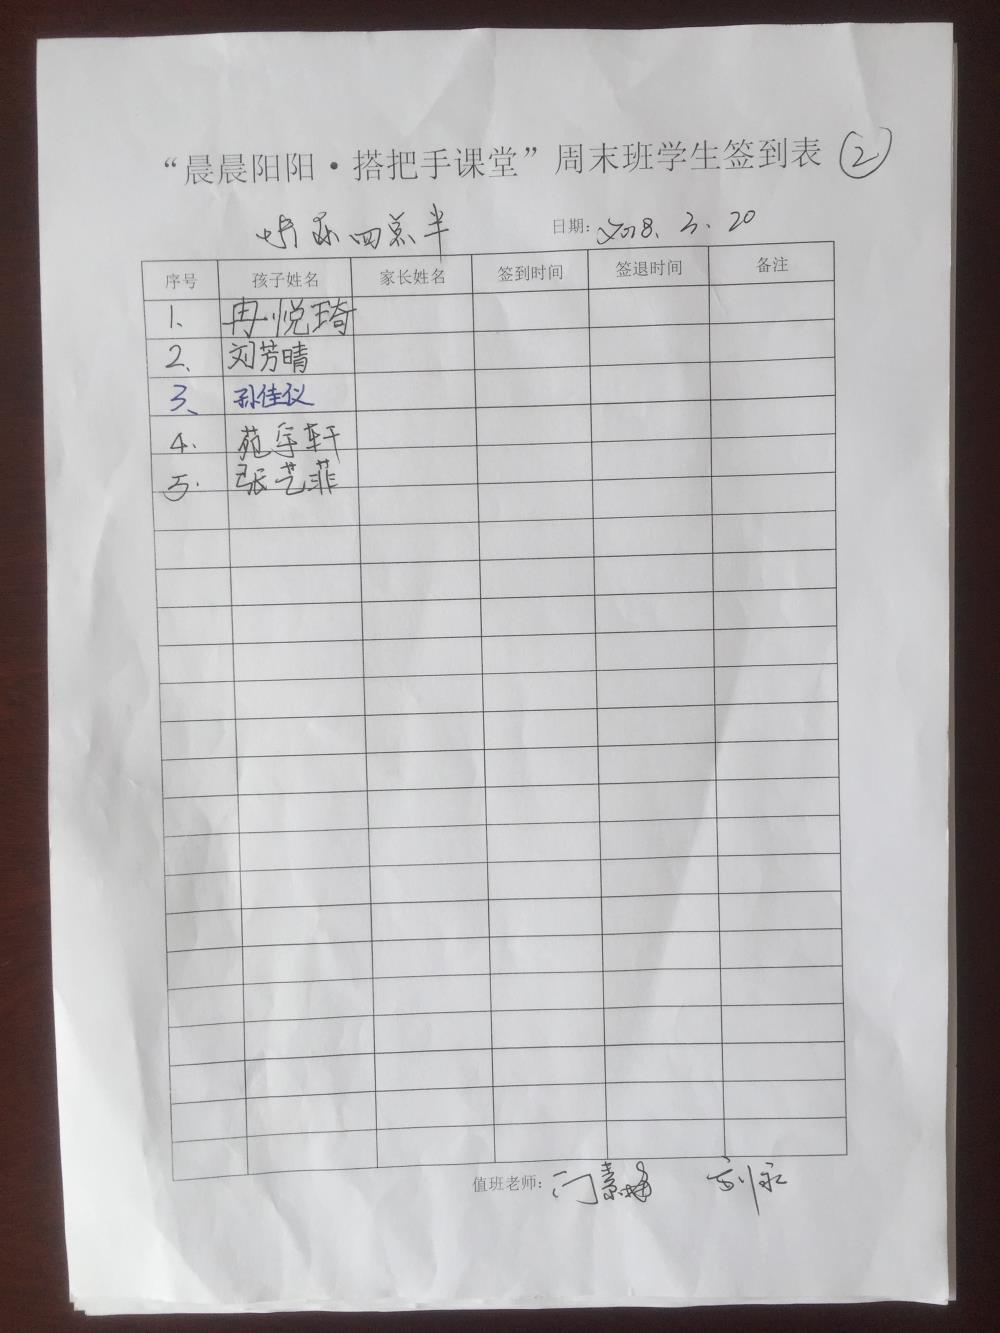 “晨晨阳阳·搭把手课堂”周末班学生签到表 ②
四点半 日期: 2018.3.20
序号 孩子姓名 家长姓名 签到时间 签退时间 备注
1、 冉悦琦
2、 刘芳晴
3、 孙佳仪
4. 苑宇轩
5. 张艺菲
值班老师: 闫素 刘永